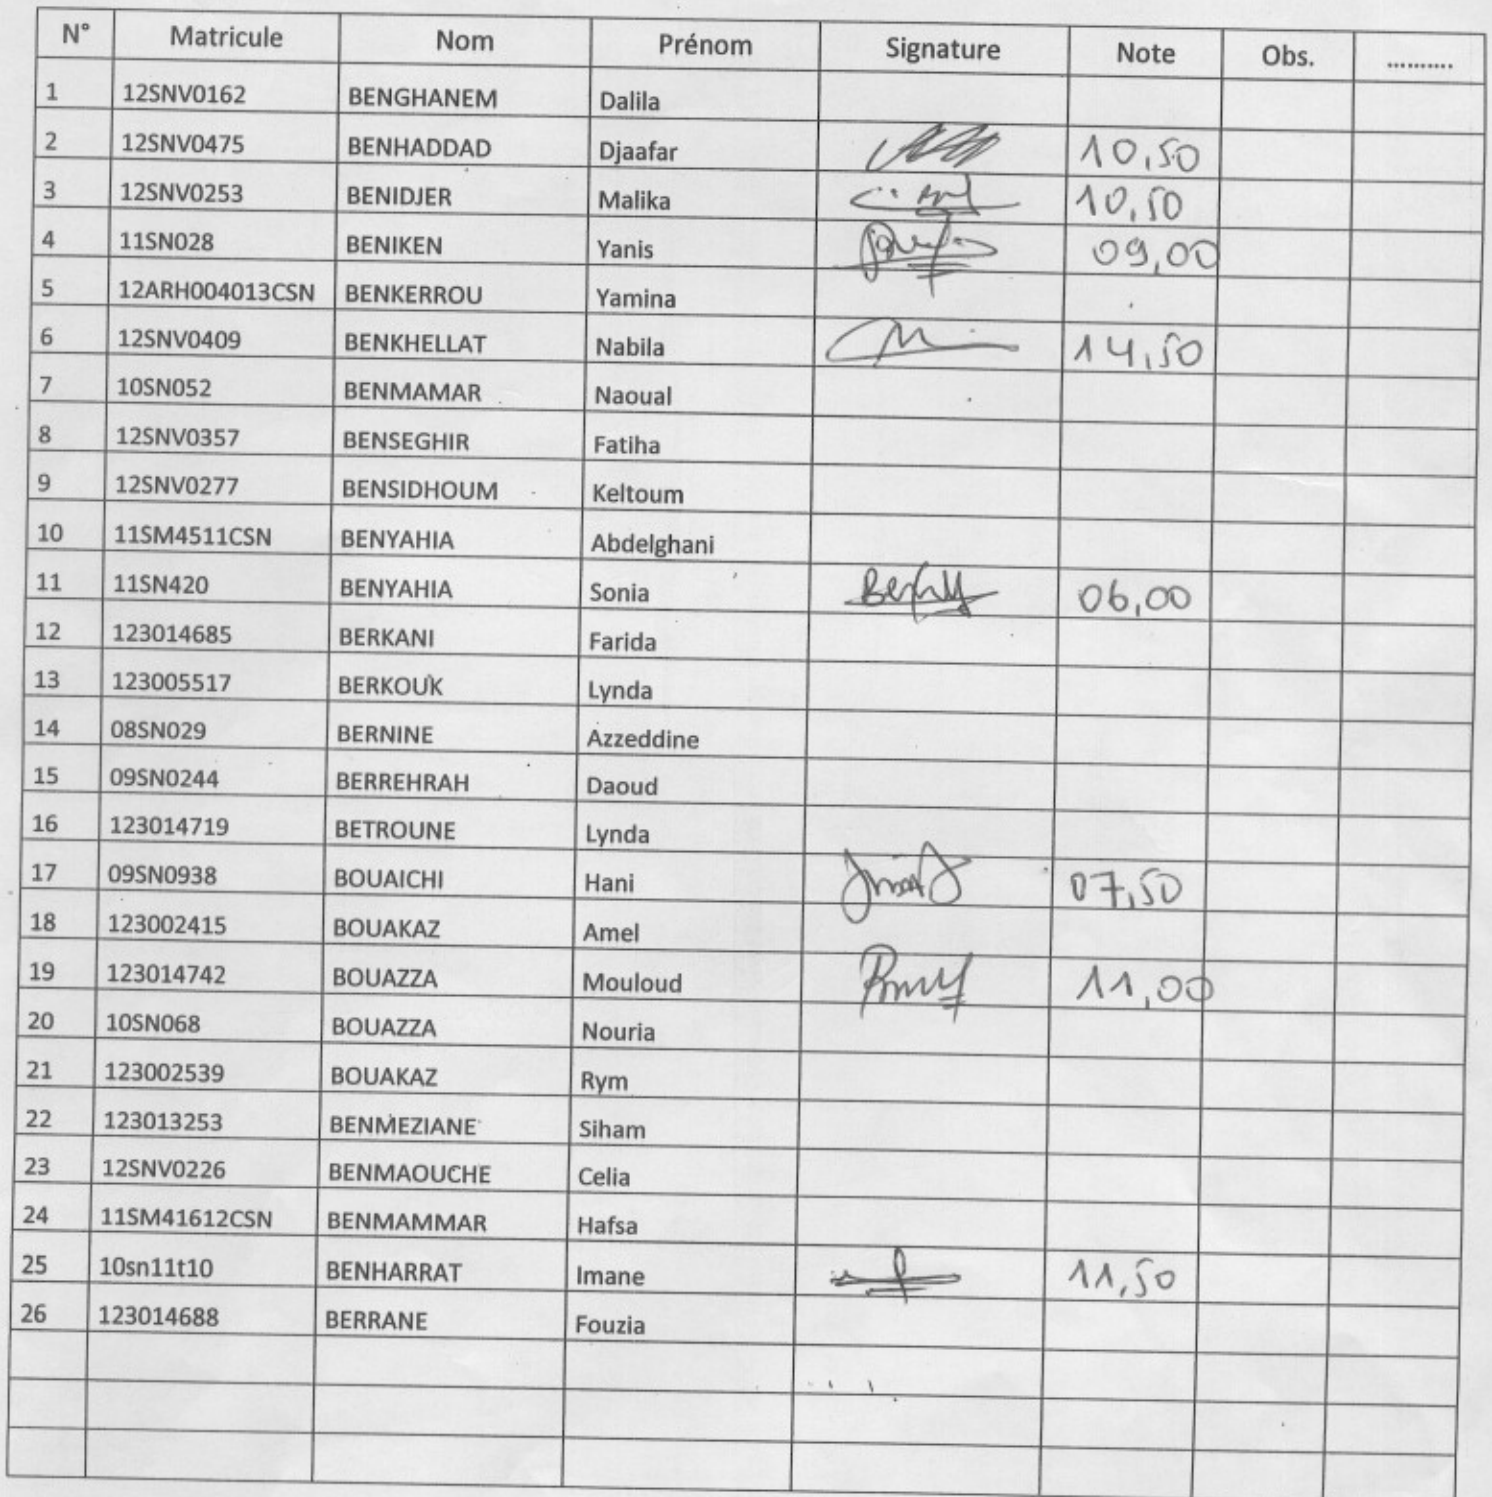 N° Matricule Nom Prénom Signature Note Obs. ..........
1 12SNV0162 BENGHANEM Dalila
2 12SNV0475 BENHADDAD Djaafar 10,50
3 12SNV0253 BENIDJER Malika 10,50
4 11SN028 BENIKEN Yanis 09,00
5 12ARH004013CSN BENKERROU Yamina
6 12SNV0409 BENKHELLAT Nabila 14,50
7 10SN052 BENMAMAR Naoual
8 12SNV0357 BENSEGHIR Fatiha
9 12SNV0277 BENSIDHOUM Keltoum
10 11SM4511CSN BENYAHIA Abdelghani
11 11SN420 BENYAHIA Sonia 06,00
12 123014685 BERKANI Farida
13 123005517 BERKOUK Lynda
14 08SN029 BERNINE Azzeddine
15 09SN0244 BERREHRAH Daoud
16 123014719 BETROUNE Lynda
17 09SN0938 BOUAICHI Hani 07,50
18 123002415 BOUAKAZ Amel
19 123014742 BOUAZZA Mouloud 11,00
20 10SN068 BOUAZZA Nouria
21 123002539 BOUAKAZ Rym
22 123013253 BENMEZIANE Siham
23 12SNV0226 BENMAOUCHE Celia
24 11SM41612CSN BENMAMMAR Hafsa
25 10sn11t10 BENHARRAT Imane 11,50
26 123014688 BERRANE Fouzia